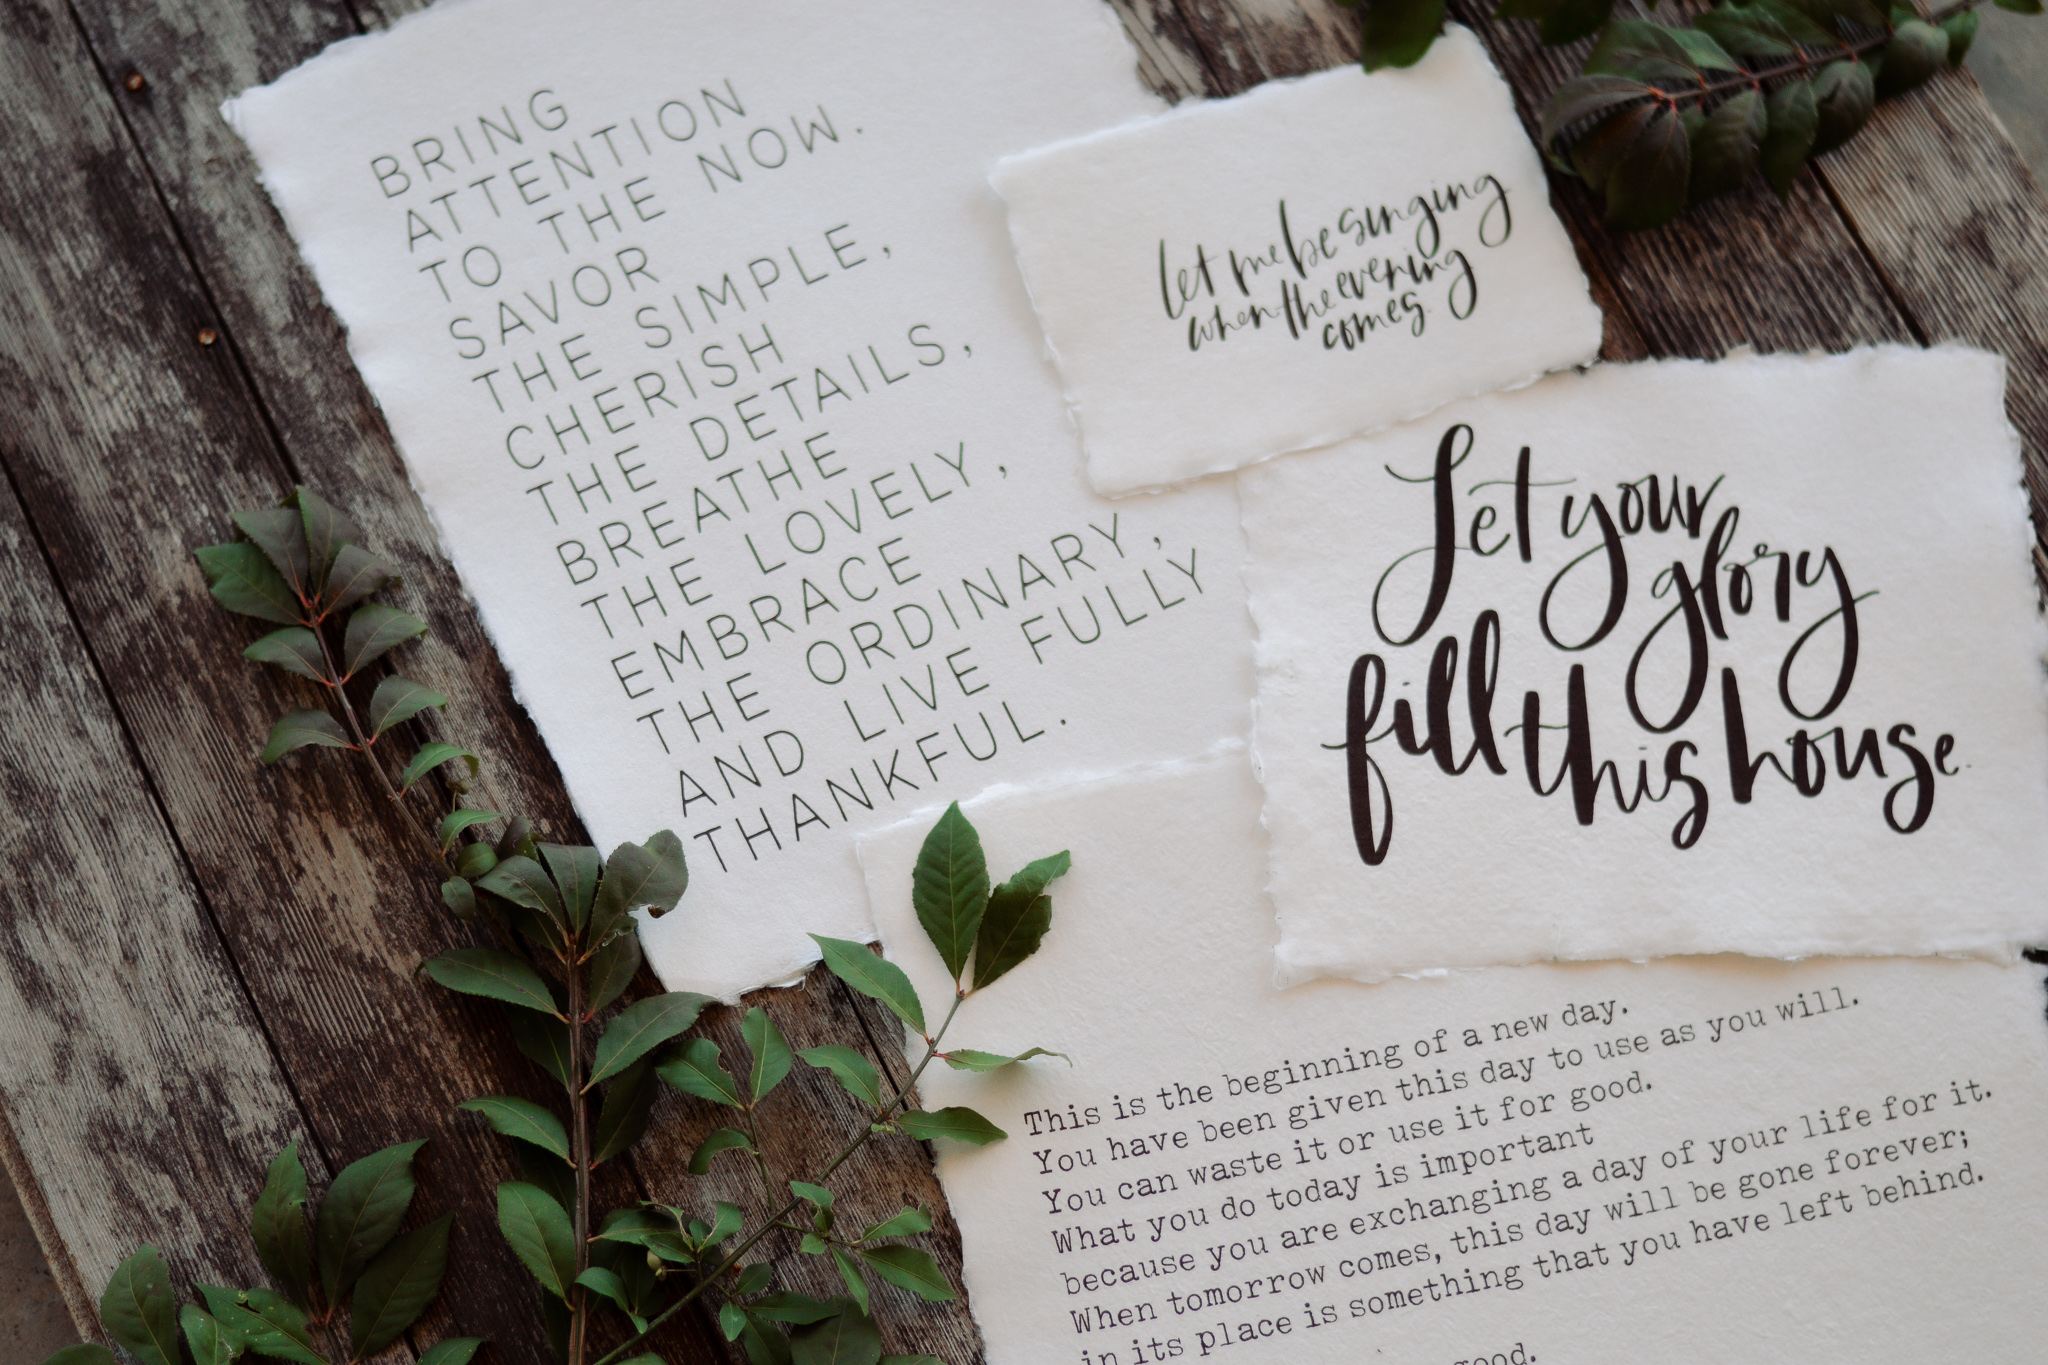 BRING
ATTENTION
TO THE NOW.
SAVOR
THE SIMPLE,
CHERISH
THE DETAILS,
BREATHE
THE LOVELY,
EMBRACE
THE ORDINARY,
AND LIVE FULLY
THANKFUL.
let me be singing
when the evening
comes.
Let your
glory
fill this house.
This is the beginning of a new day.
You have been given this day to use as you will.
You can waste it or use it for good.
What you do today is important
because you are exchanging a day of your life for it.
When tomorrow comes, this day will be gone forever;
in its place is something that you have left behind.
good.